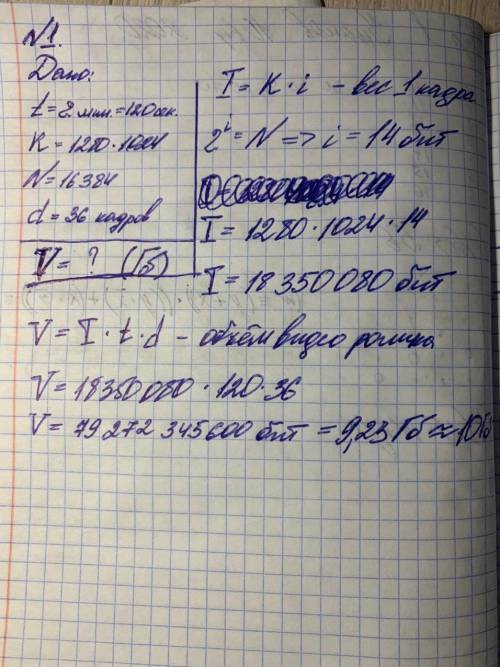 №1.
Дано:
t = 2 мин. = 120 сек.
K = 1280 · 1024
N = 16384
d = 36 кадров
V = ? (Гб)
I = K · i - вес 1 кадра
2^i = N => i = 14 бит
I = 1280 · 1024 · 14
I = 18 350 080 бит
V = I · t · d - объём видео ролика
V = 18350080 · 120 · 36
V = 79 272 345 600 бит = 9,23 Гб ≈ 10 Гб